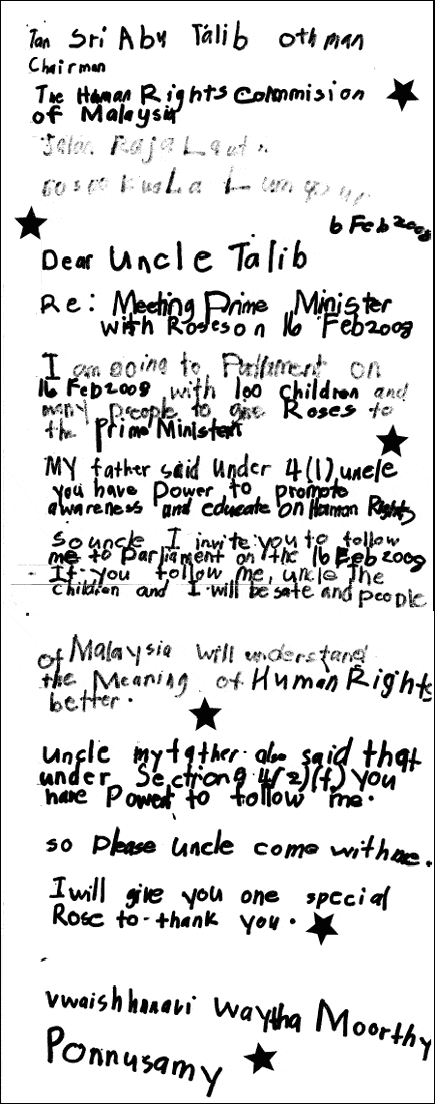 Tan Sri Abu Talib Othman
Chairman
The Human Rights Commision
of Malaysia
Jalan Raja Laut
Kuala Lumpur
6 Feb 2008
Dear Uncle Talib
Re: Meeting Prime Minister
with Roses on 16 Feb 2008
I am going to Parliment on
16 Feb 2008 with 100 children and
many people to give Roses to
the Prime Minister
MY father said under 4(1), uncle
you have Power to promote
awareness and educate on Human Rights
so uncle I invite you to follow
me to Parliament on the 16 Feb 2008
If you follow me, uncle The
children and I will be safe and people
of Malaysia will understand
the Meaning of Human Rights
better.
Uncle my father also said that
under Section 4(2)(f) you
have Power to follow me.
so Please Uncle come with me.
I will give you one special
Rose to thank you.
Vwaishhnnavi Waytha Moorthy
Ponnusamy